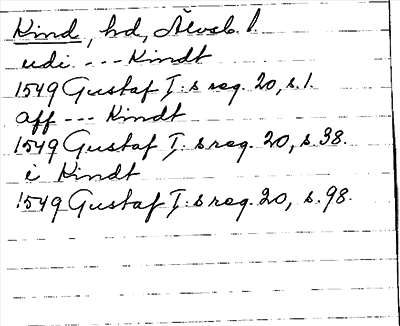 Kind, hd, Älvsb. l.
udi --- Kindt
1549 Gustaf I:s reg. 20, s. 1.
aff --- Kindt
1549 Gustaf I:s reg. 20, s. 38.
i Kindt
1549 Gustaf I:s reg. 20, s. 98.